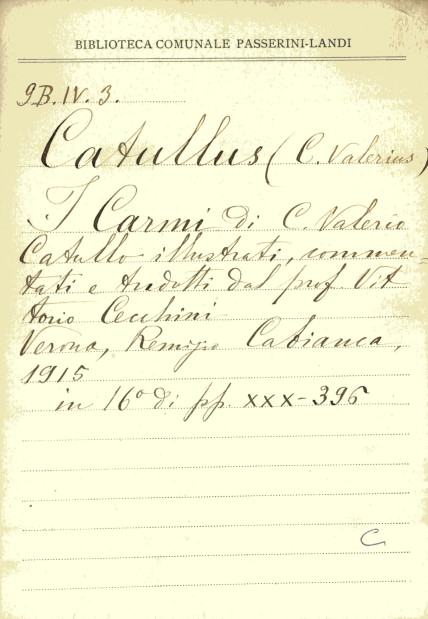 BIBLIOTECA COMUNALE PASSERINI-LANDI
9B.IV.3.
Catullus (C. Valerius)
I Carmi di C. Valerio
Catullo illustrati, commen-
tati e tradotti dal prof. Vit
torio Cecchini
Verona, Remigio Cabianca,
1915
in 16° di pp. XXX-396
C